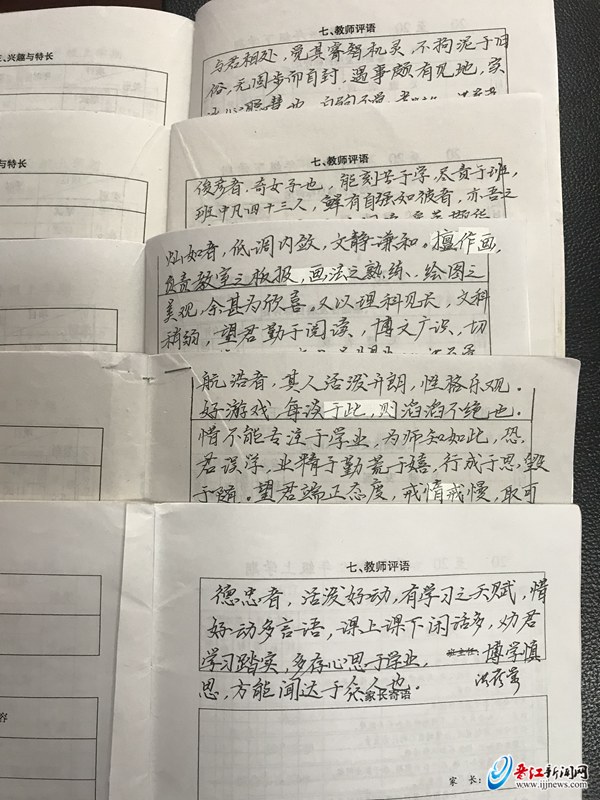 三、兴趣与特长
七、教师评语
与君相处，觉其睿智机灵，不拘泥于旧
俗，无固步而自封，遇事颇有见地，实
七、教师评语
与特长
俊彦者，奇女子也，能刻苦于学，尽责于班，
班中凡四十三人，鲜有自强如彼者，亦吾之
灿如者，低调内敛，文静谦和。擅作画，
负责教室之板报，画法之熟练、绘图之
美观，余甚为欣喜。又以理科见长，文科
稍弱，望君勤于阅读，博文广识，切
航语者，其人活泼开朗，性格乐观。
好游戏，每谈于此，则滔滔不绝也。
惜不能专注于学业，为师知如此，恐
君误学，业精于勤荒于嬉，行成于思，毁
于随。望君端正态度，戒惰戒慢，取可
七、教师评语
德忠者，活泼好动，有学习之天赋，惜
好动多言语，课上课下闲话多，劝君
学习踏实，多存心思于学业， 博学慎
思，方能闻达于众人也。
家长寄语
家 长：
晋江新闻网
www.ijjnews.com